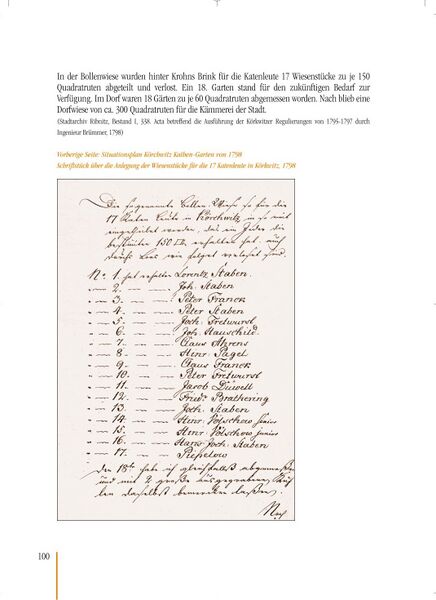 In der Bollenwiese wurden hinter Krohns Brink für die Katenleute 17 Wiesenstücke zu je 150
Quadratruten abgeteilt und verlost. Ein 18. Garten stand für den zukünftigen Bedarf zur
Verfügung. Im Dorf waren 18 Gärten zu je 60 Quadratruten abgemessen worden. Nach blieb eine
Dorfwiese von ca. 300 Quadratruten für die Kämmerei der Stadt.
(Stadtarchiv Ribnitz, Bestand I, 338. Acta betreffend die Ausführung der Körkwitzer Regulierungen von 1795-1797 durch
Ingenieur Brümmer, 1798)
Vorherige Seite: Situationsplan Körchwitz Kathen-Garten von 1798
Schriftstück über die Anlegung der Wiesenstücke für die 17 Katenleute in Körkwitz, 1798
Die sogenannte Bollen Wiese so für die
17 Katen Leute in Körchwitz in so weit
eingetheilet worden, das ein Jeder die
bestimten 150 erhalten hat, auch
durchs Loos wie folget verloset sind.
No. 1. hat erhalten Lorentz Staben.
— 2. — Joh. Staben
— 3. — Peter Franck
— 4. — Peter Staben
— 5. — Joch. Fretwurst
— 6. — Joh. Hauschild.
— 7. — Claus Ahrens
— 8. — Hinr. Pagel
— 9. — Claus Franck
— 10. — Peter Fretwurst
— 11. — Jacob Düwell
— 12. — Friedr. Brathering
— 13. — Joch. Staben
— 14. — Hinr. Völschow Junior
— 15. — Hinr. Völschow Junior
— 16. — Hans Joch. Staben
— 17. — Piepelow
den 18ten habe ich gleichfalls abgemessen
und mit 2 große ausgegrabene
daselbst bemercken laßen.
100